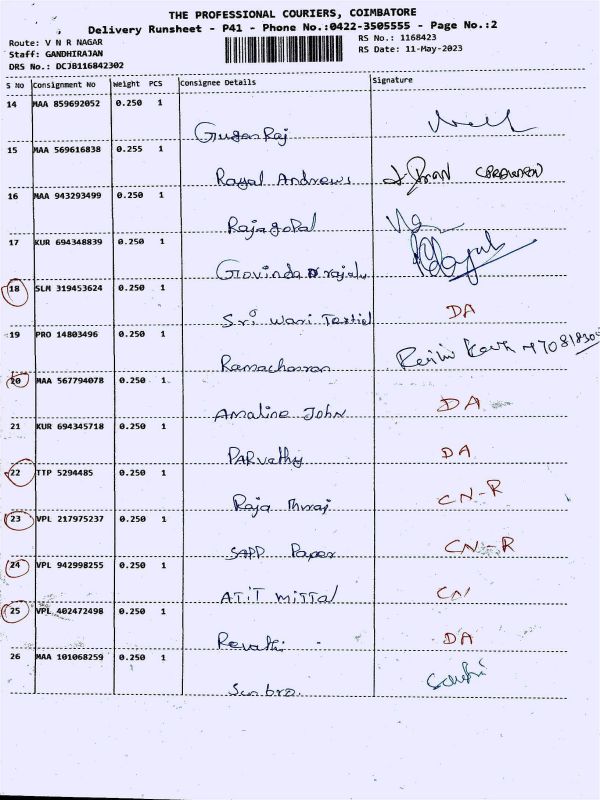 THE PROFESSIONAL COURIERS, COIMBATORE
Delivery Runsheet - P41 - Phone No.:0422-3505555 - Page No.:2
Route: V N R NAGAR RS No.: 1168423
Staff: GANDHIRAJAN RS Date: 11-May-2023
DRS No.: DCJB116842302
S No Consignment No Weight PCS Consignee Details Signature
14 MAA 859692052 0.250 1
Gugan Raj
15 MAA 569616838 0.255 1
Royal Andrews
16 MAA 943293499 0.250 1
Rajagopal
17 KUR 694348839 0.250 1
Govinda rajalu
18 SLM 319453624 0.250 1
Sri Wari Textiel DA
19 PRO 14803496 0.250 1
20 MAA 567794078 0.250 1
Amaline John DA
21 KUR 694345718 0.250 1
Parvathy DA
22 TTP 5294485 0.250 1
Raja CN-R
23 VPL 217975237 0.250 1
SAPP Paper CN-R
24 VPL 942998255 0.250 1
ATIT MITTAL CN
25 VPL 402472498 0.250 1
Revathi DA
26 MAA 101068259 0.250 1
Sunbro.